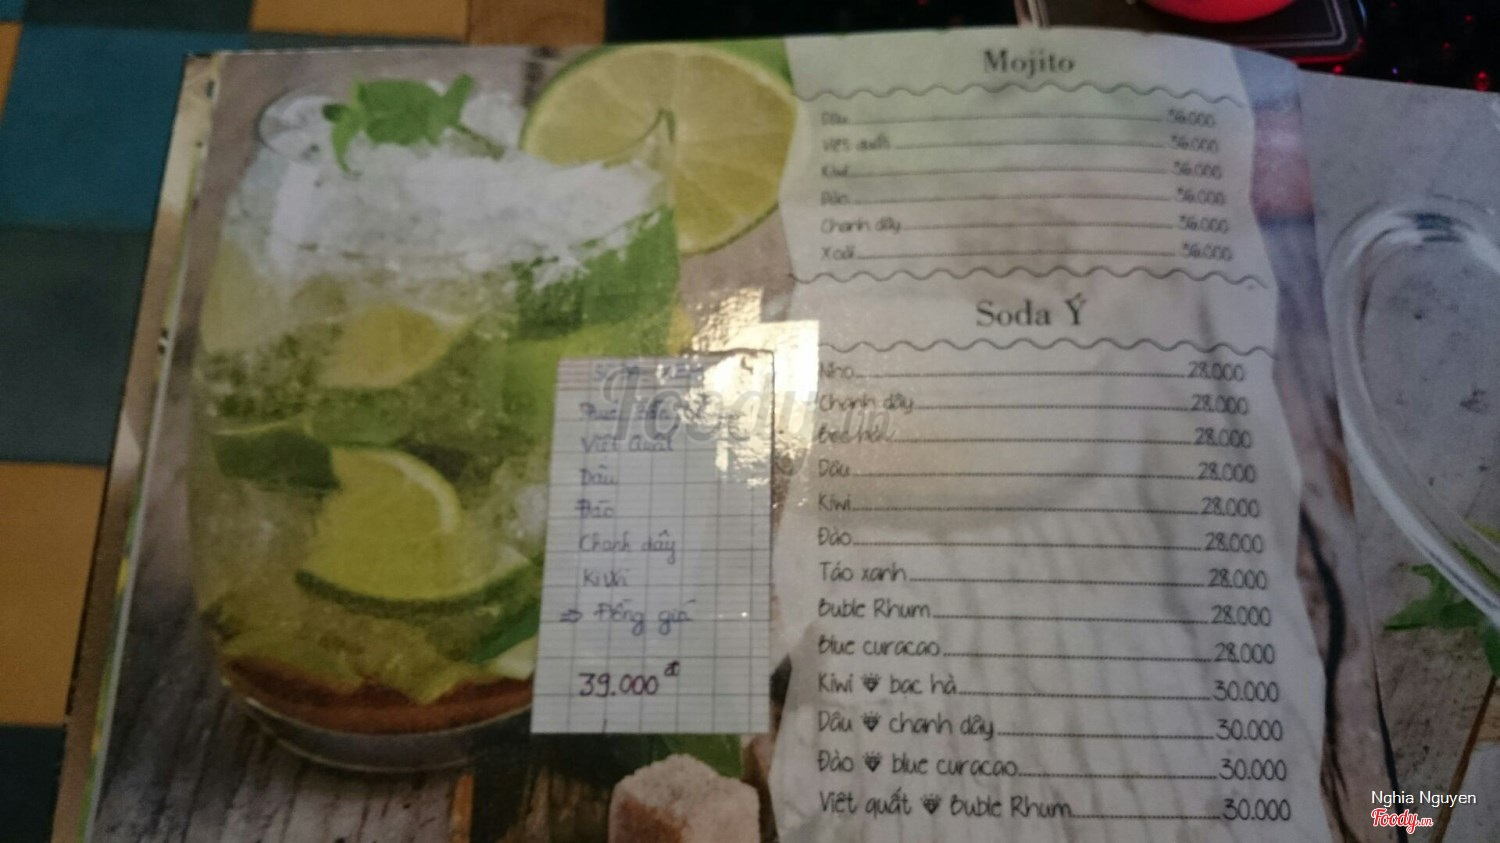 Mojito
Dâu 36.000
Việt quất 36.000
Kiwi 36.000
Đào 36.000
Chanh dây 36.000
Xoài 36.000
Soda Ý
Nho 28.000
Chanh dây 28.000
Bạc hà 28.000
Dâu 28.000
Kiwi 28.000
Đào 28.000
Táo xanh 28.000
Buble Rhum 28.000
Blue curacao 28.000
Kiwi bạc hà 30.000
Dâu chanh dây 30.000
Đào blue curacao 30.000
Việt quất Buble Rhum 30.000
Việt Quất
Dâu
Đào
Chanh dây
Kiwi
⇒ Đồng giá
39.000đ
Foody.vn
Nghia Nguyen
Foody.vn